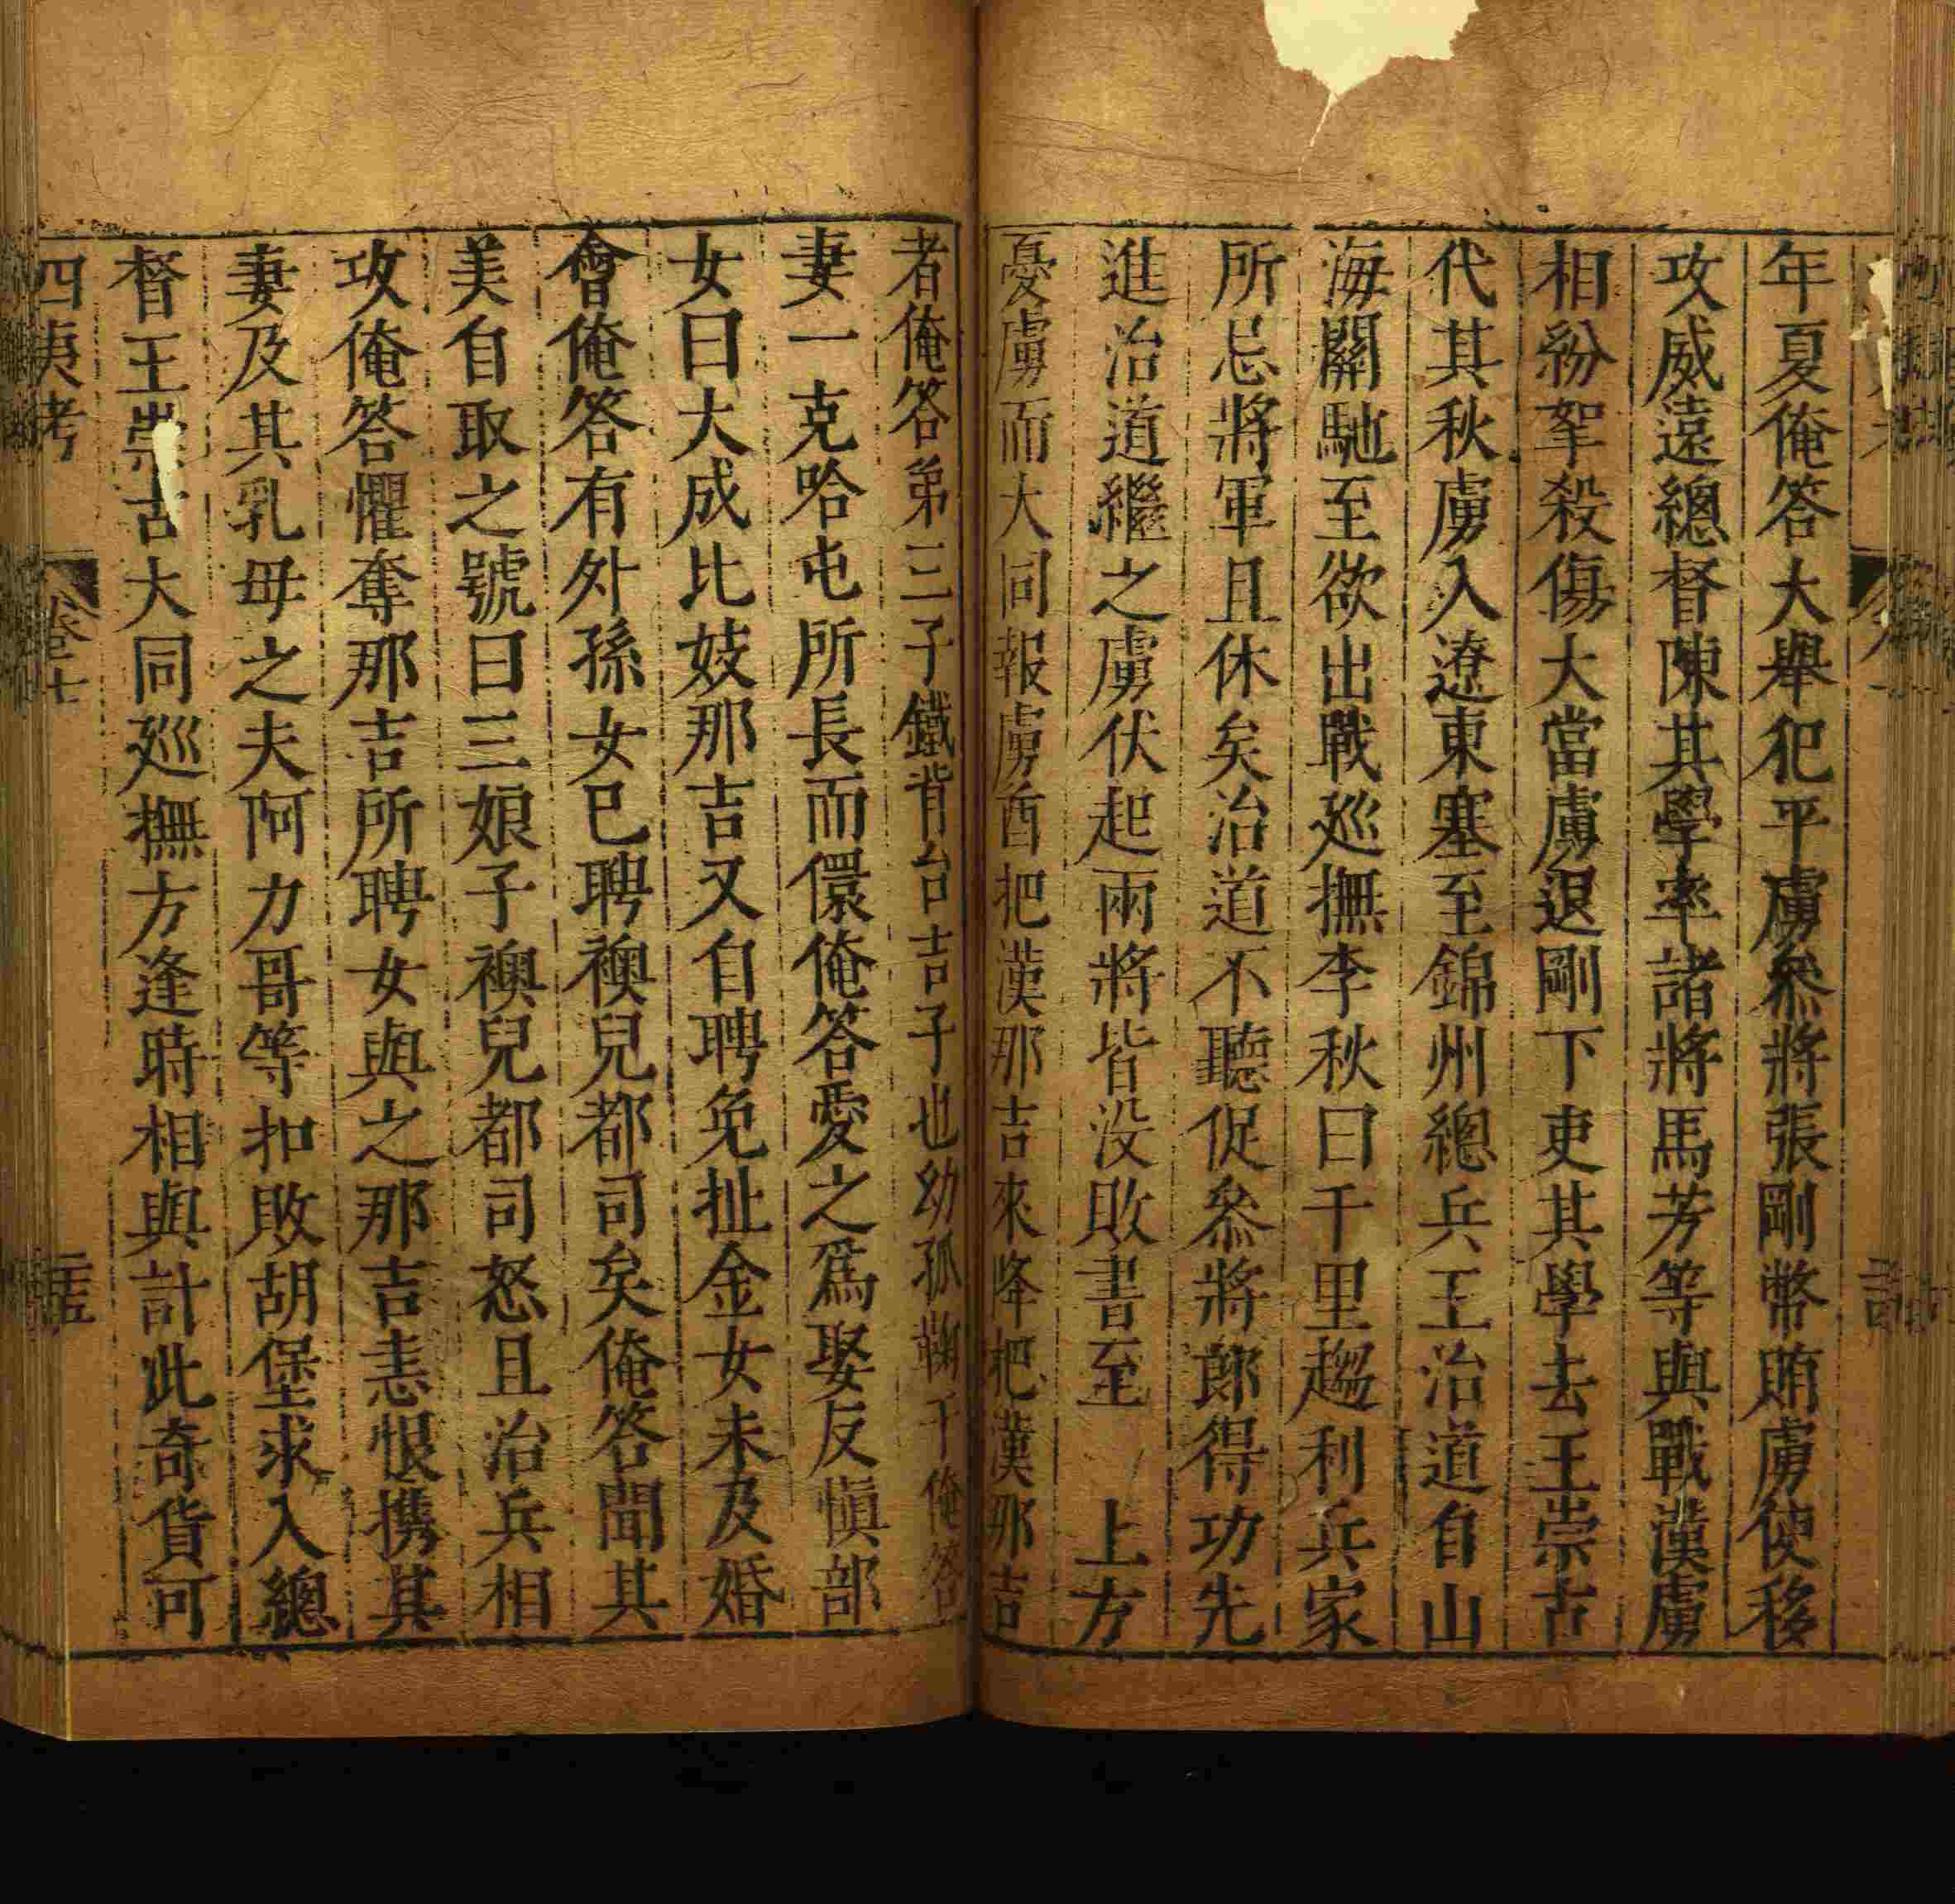 年夏俺答大舉犯平虜叅將張剛幣賄虜使移
攻威遠總督陳其學率諸將馬芳等與戰漢虜
相紛挐殺傷大當虜退剛下吏其學去王崇古
代其秋虜入遼東塞至錦州總兵王治道自山
海關馳至欲出戰巡撫李秋曰千里趨利兵家
所忌將軍且休矣治道不聽促叅將郎得功先
進治道繼之虜伏起兩將皆没敗書至 上方
憂虜而大同報虜酋把漢那吉來降把漢那吉
者俺答第三子鐵背台吉子也幼孤鞠于俺答
妻一克哈屯所長而儇俺答愛之爲娶反慎部
女曰大成比妓那吉又自聘免扯金女未及婚
會俺答有外孫女已聘襖兒都司矣俺答聞其
美自取之號曰三娘子襖兒都司怒且治兵相
攻俺答懼奪那吉所聘女與之那吉恚恨携其
妻及其乳母之夫阿力哥等扣敗胡堡求入總
督王崇古大同巡撫方逢時相與計此奇貨可
四夷考 卷七